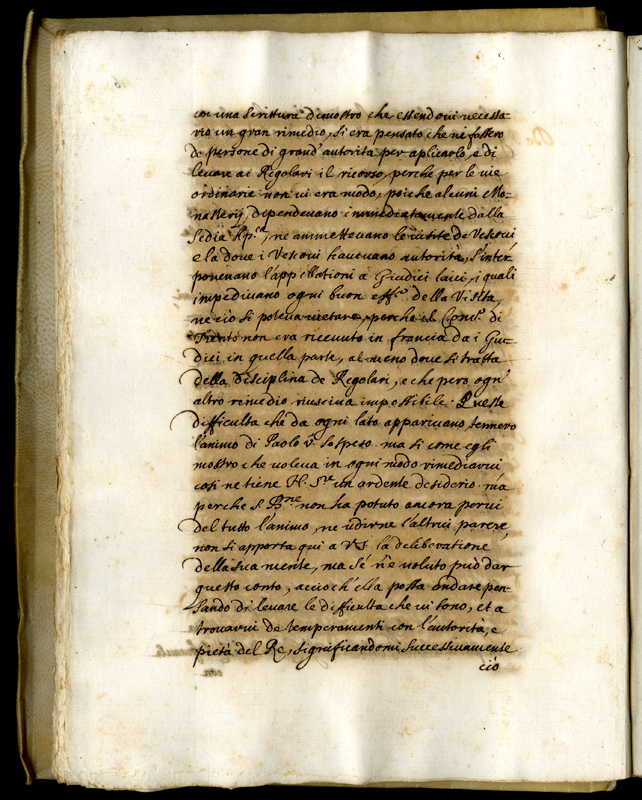 con una scrittura dimostro che essendoui necessa-
rio un gran rimedio, si era pensato che ne fossero
da persone di grand' autorità per aplicarlo, e di
leuare ai Regolari il ricorso, perche per le vie
ordinarie non ui era modo, poiche alcuni Mo-
nasterij dipendeuano immediatamente dalla
Sedia Ap.ca, ne ammetteuano le uisite de Vescoui
e la doue i Vescoui haueuano autorità, s'inter-
poneuano l'appellationi a Giudici laici, i quali
impediuano ogni buon eff.o della Visita,
ne ciò si poteua uietare, perche il Conc.o di
Trento non era riceuuto in francia da i Giu-
dici in quella parte, al meno doue si tratta
della Disciplina de Regolari, e che però ogn'
altro rimedio riusciua impossibile. Queste
difficulta che da ogni lato appariuano tennero
l'animo di Paolo V. sospeso. ma si come egli
mostrò che uoleua in ogni modo rimediarui
così ne tiene N. S.re un ardente desiderio. ma
perche S. B.ne non ha potuto ancora porui
del tutto l'animo, ne udirne l'altrui parere
non si apporta qui a VS. la deliberatione
della sua mente, ma se n'è uoluto può dar
questo conto, acciò ch'ella possa andare pen-
sando di leuare le difficulta che ui sono, et a
trouarui de temperamenti con l'autorità, e
pietà del Re, significandomi successiuamente
ciò